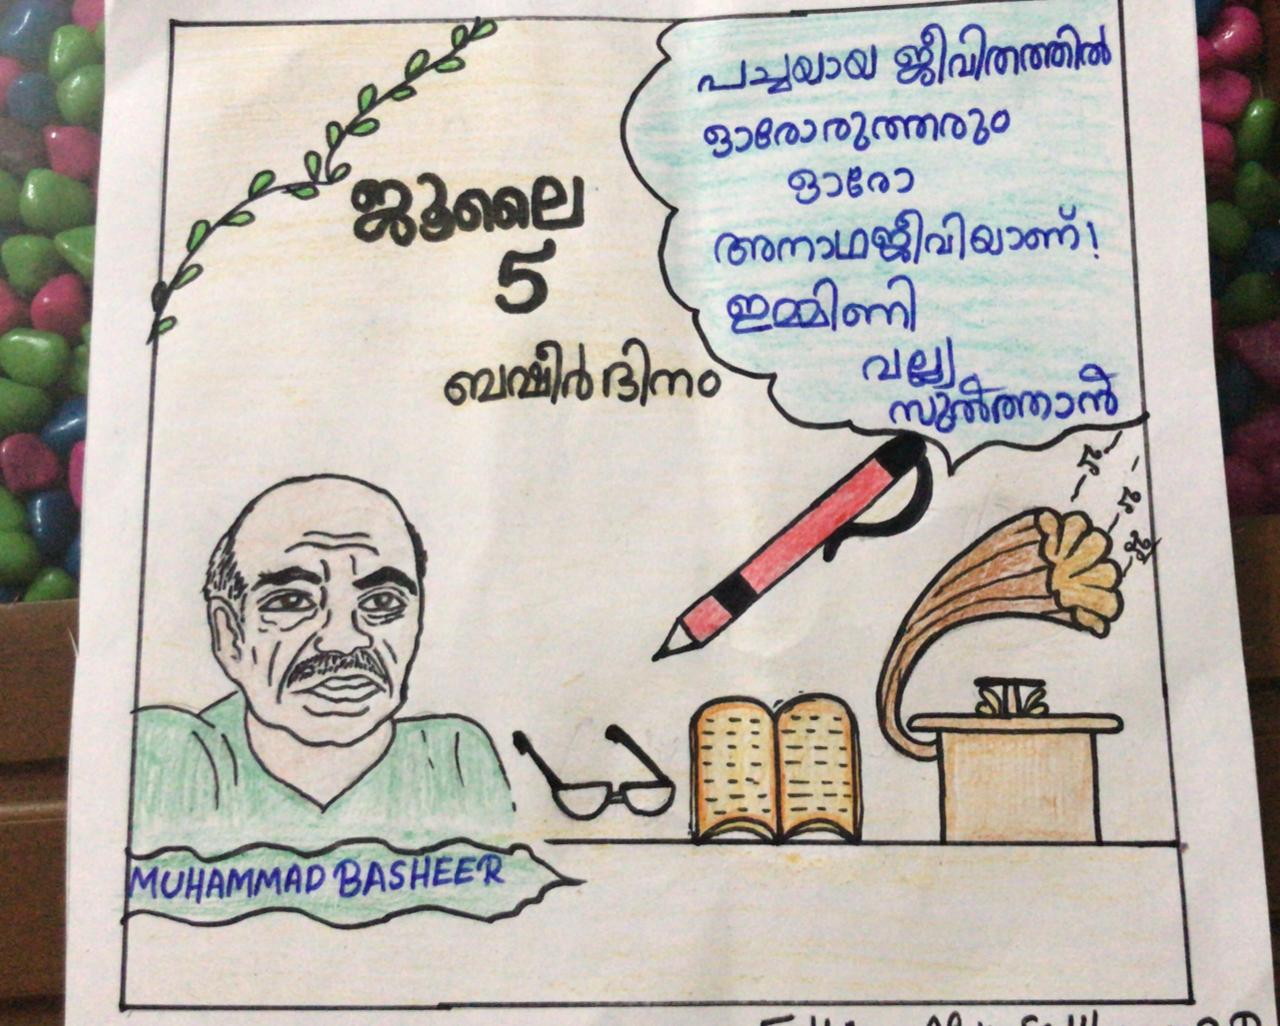 ജൂലൈ
5
ബഷീർ ദിനം
പച്ചയായ ജീവിതത്തിൽ
ഓരോരുത്തരും
ഓരോ
അനാഥജീവിയാണ്!
ഇമ്മിണി
വല്ല്യ
സുൽത്താൻ
MUHAMMAD BASHEER